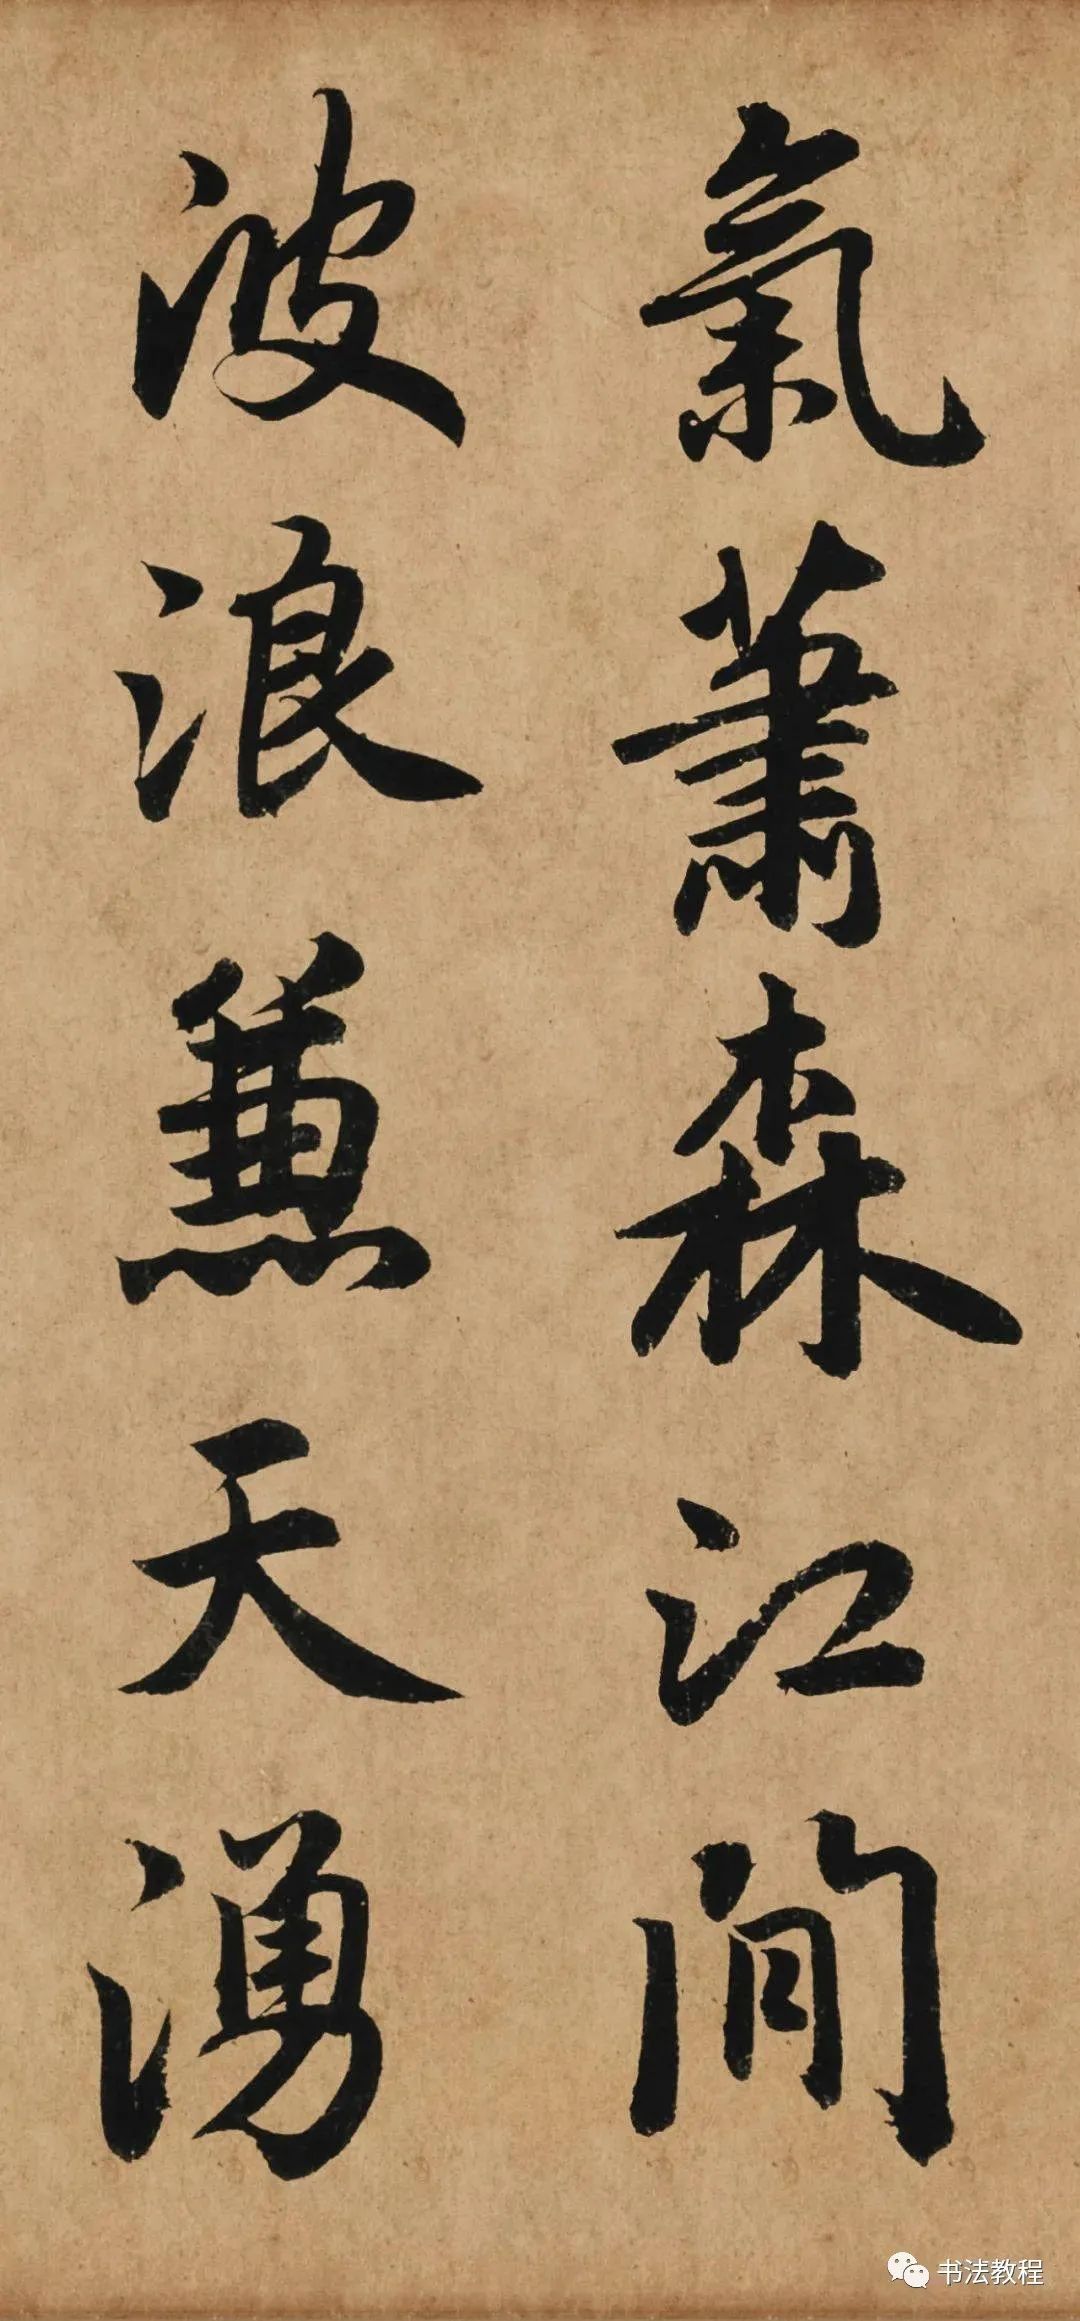 氣蕭森江間
波浪兼天湧
书法教程